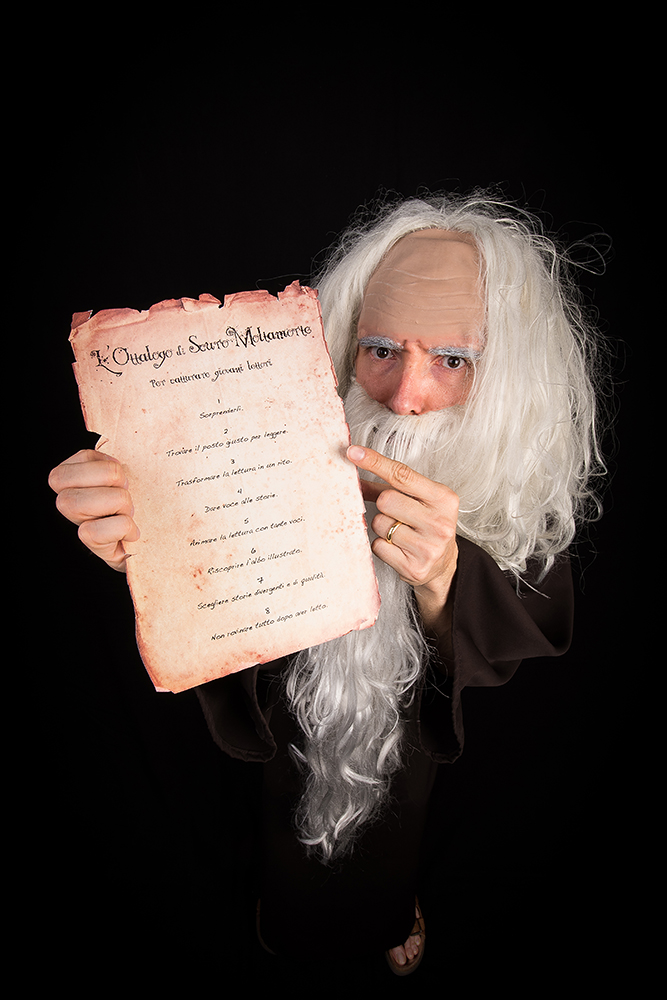 L'Ottalogo di Souro Moltamorte
Per catturare giovani lettori
1
Sorprenderli.
2
Trovare il posto giusto per leggere.
3
Trasformare la lettura in un rito.
4
Dare voce alle storie.
5
Animare la lettura con tante voci.
6
Riscoprire l'albo illustrato.
7
Scegliere storie divergenti e di qualità.
8
Non rovinare tutto dopo aver letto.